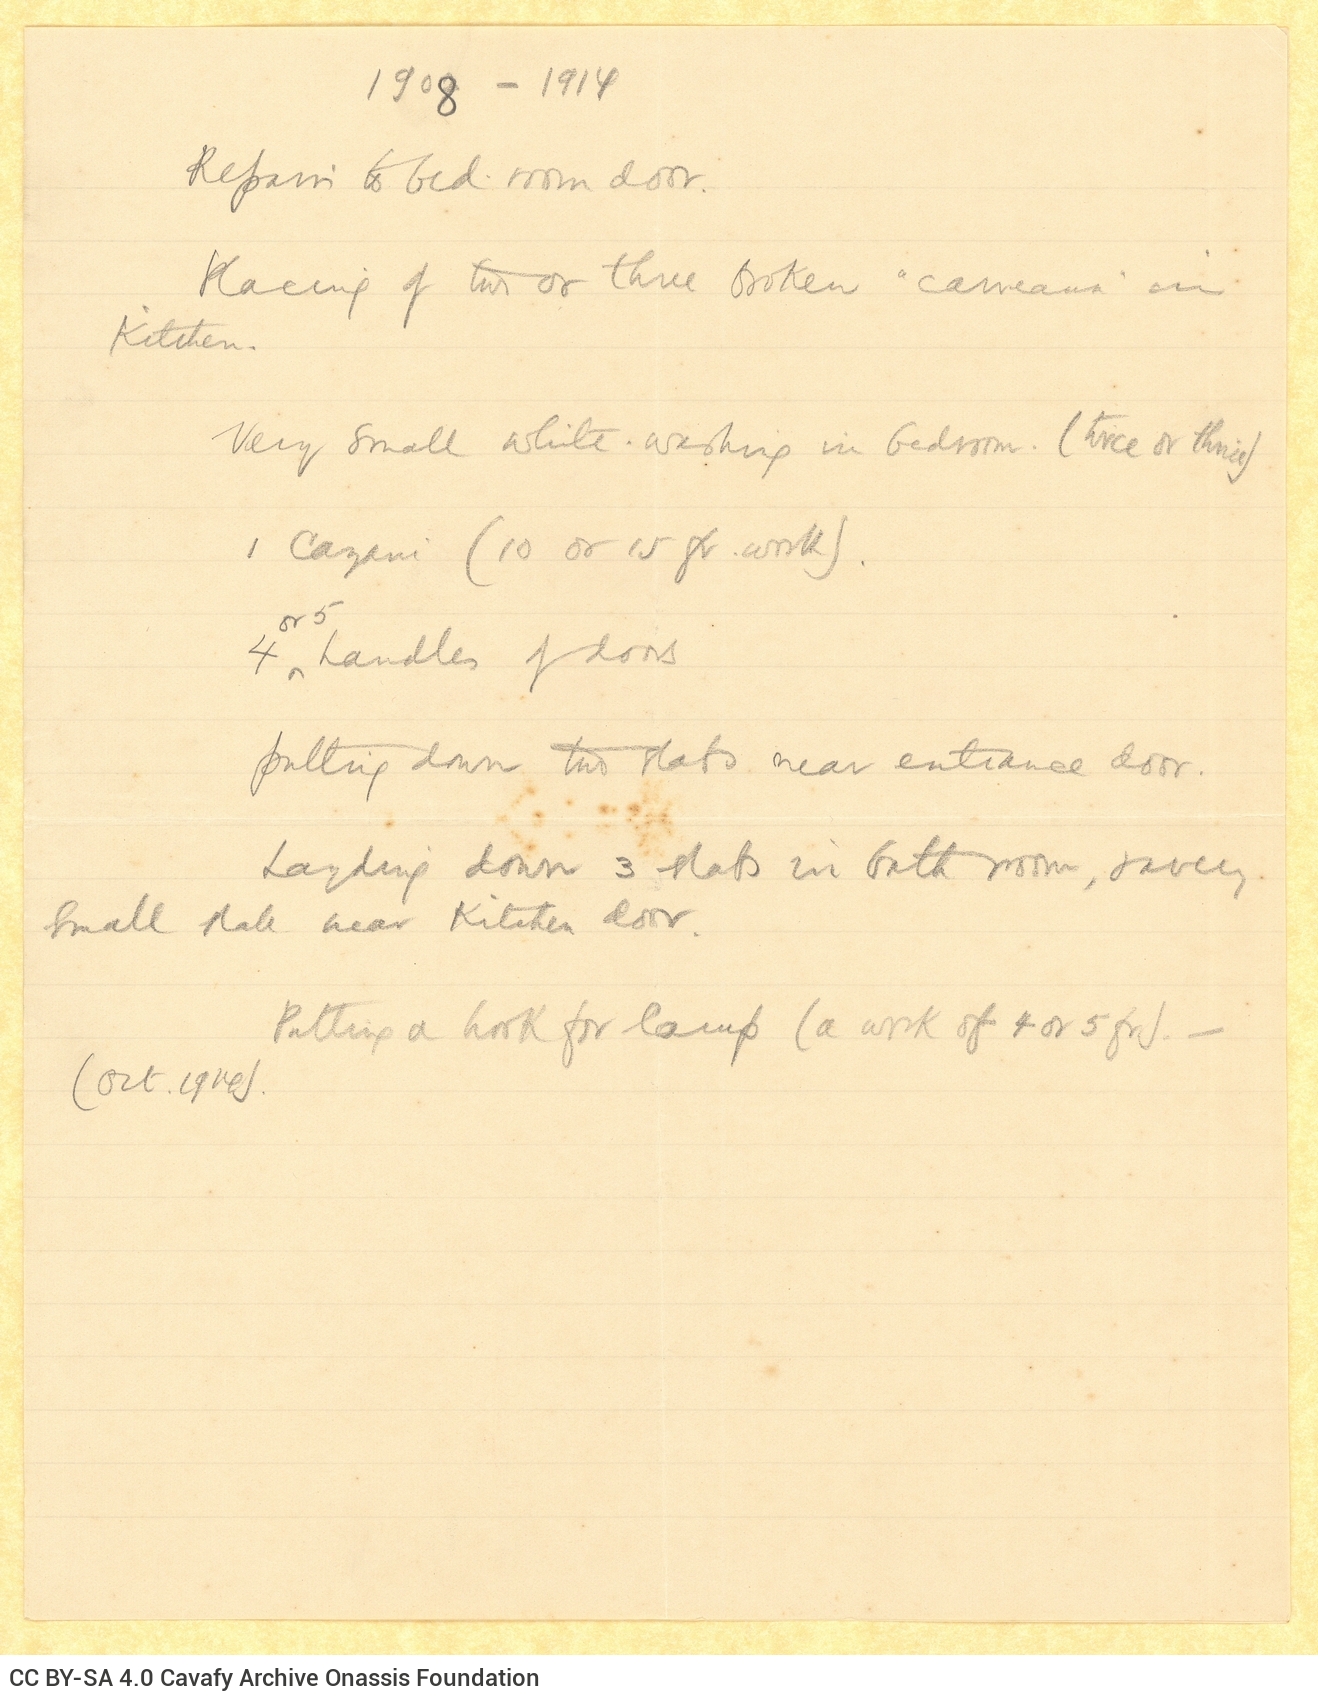 1908 – 1914
Repairs to bed-room door.
Placing of two or three broken " in
Kitchen.
Very small white-washing in bedroom. (twice or thrice)
1 Cazani (10 or 15 fr. work).
or 5
4 handles of doors
putting down two slabs near entrance door.
Laying down 3 slabs in bath room, & very
small slab near Kitchen door.
Putting a hook for lamp (a work of 4 or 5 fr). –
(Oct. 1914).
CC BY-SA 4.0 Cavafy Archive Onassis Foundation